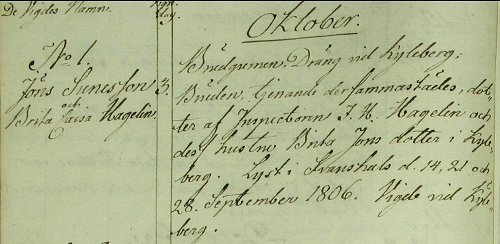 De Vigdes Namn.
Oktober.
No 1.
Jöns Sunesson 3.
och
Brita Caisa Hagelin.
Brudgummen, Dräng vid Kyleberg;
Bruden, tjenande dersammastädes, dot-
ter af Inspectorn J. H. Hagelin och
des hustru Brita Jons dotter i Kyle-
berg. Lyst i Svanshals d. 14, 21 och
28. September 1806. Vigde vid Kyle-
berg.